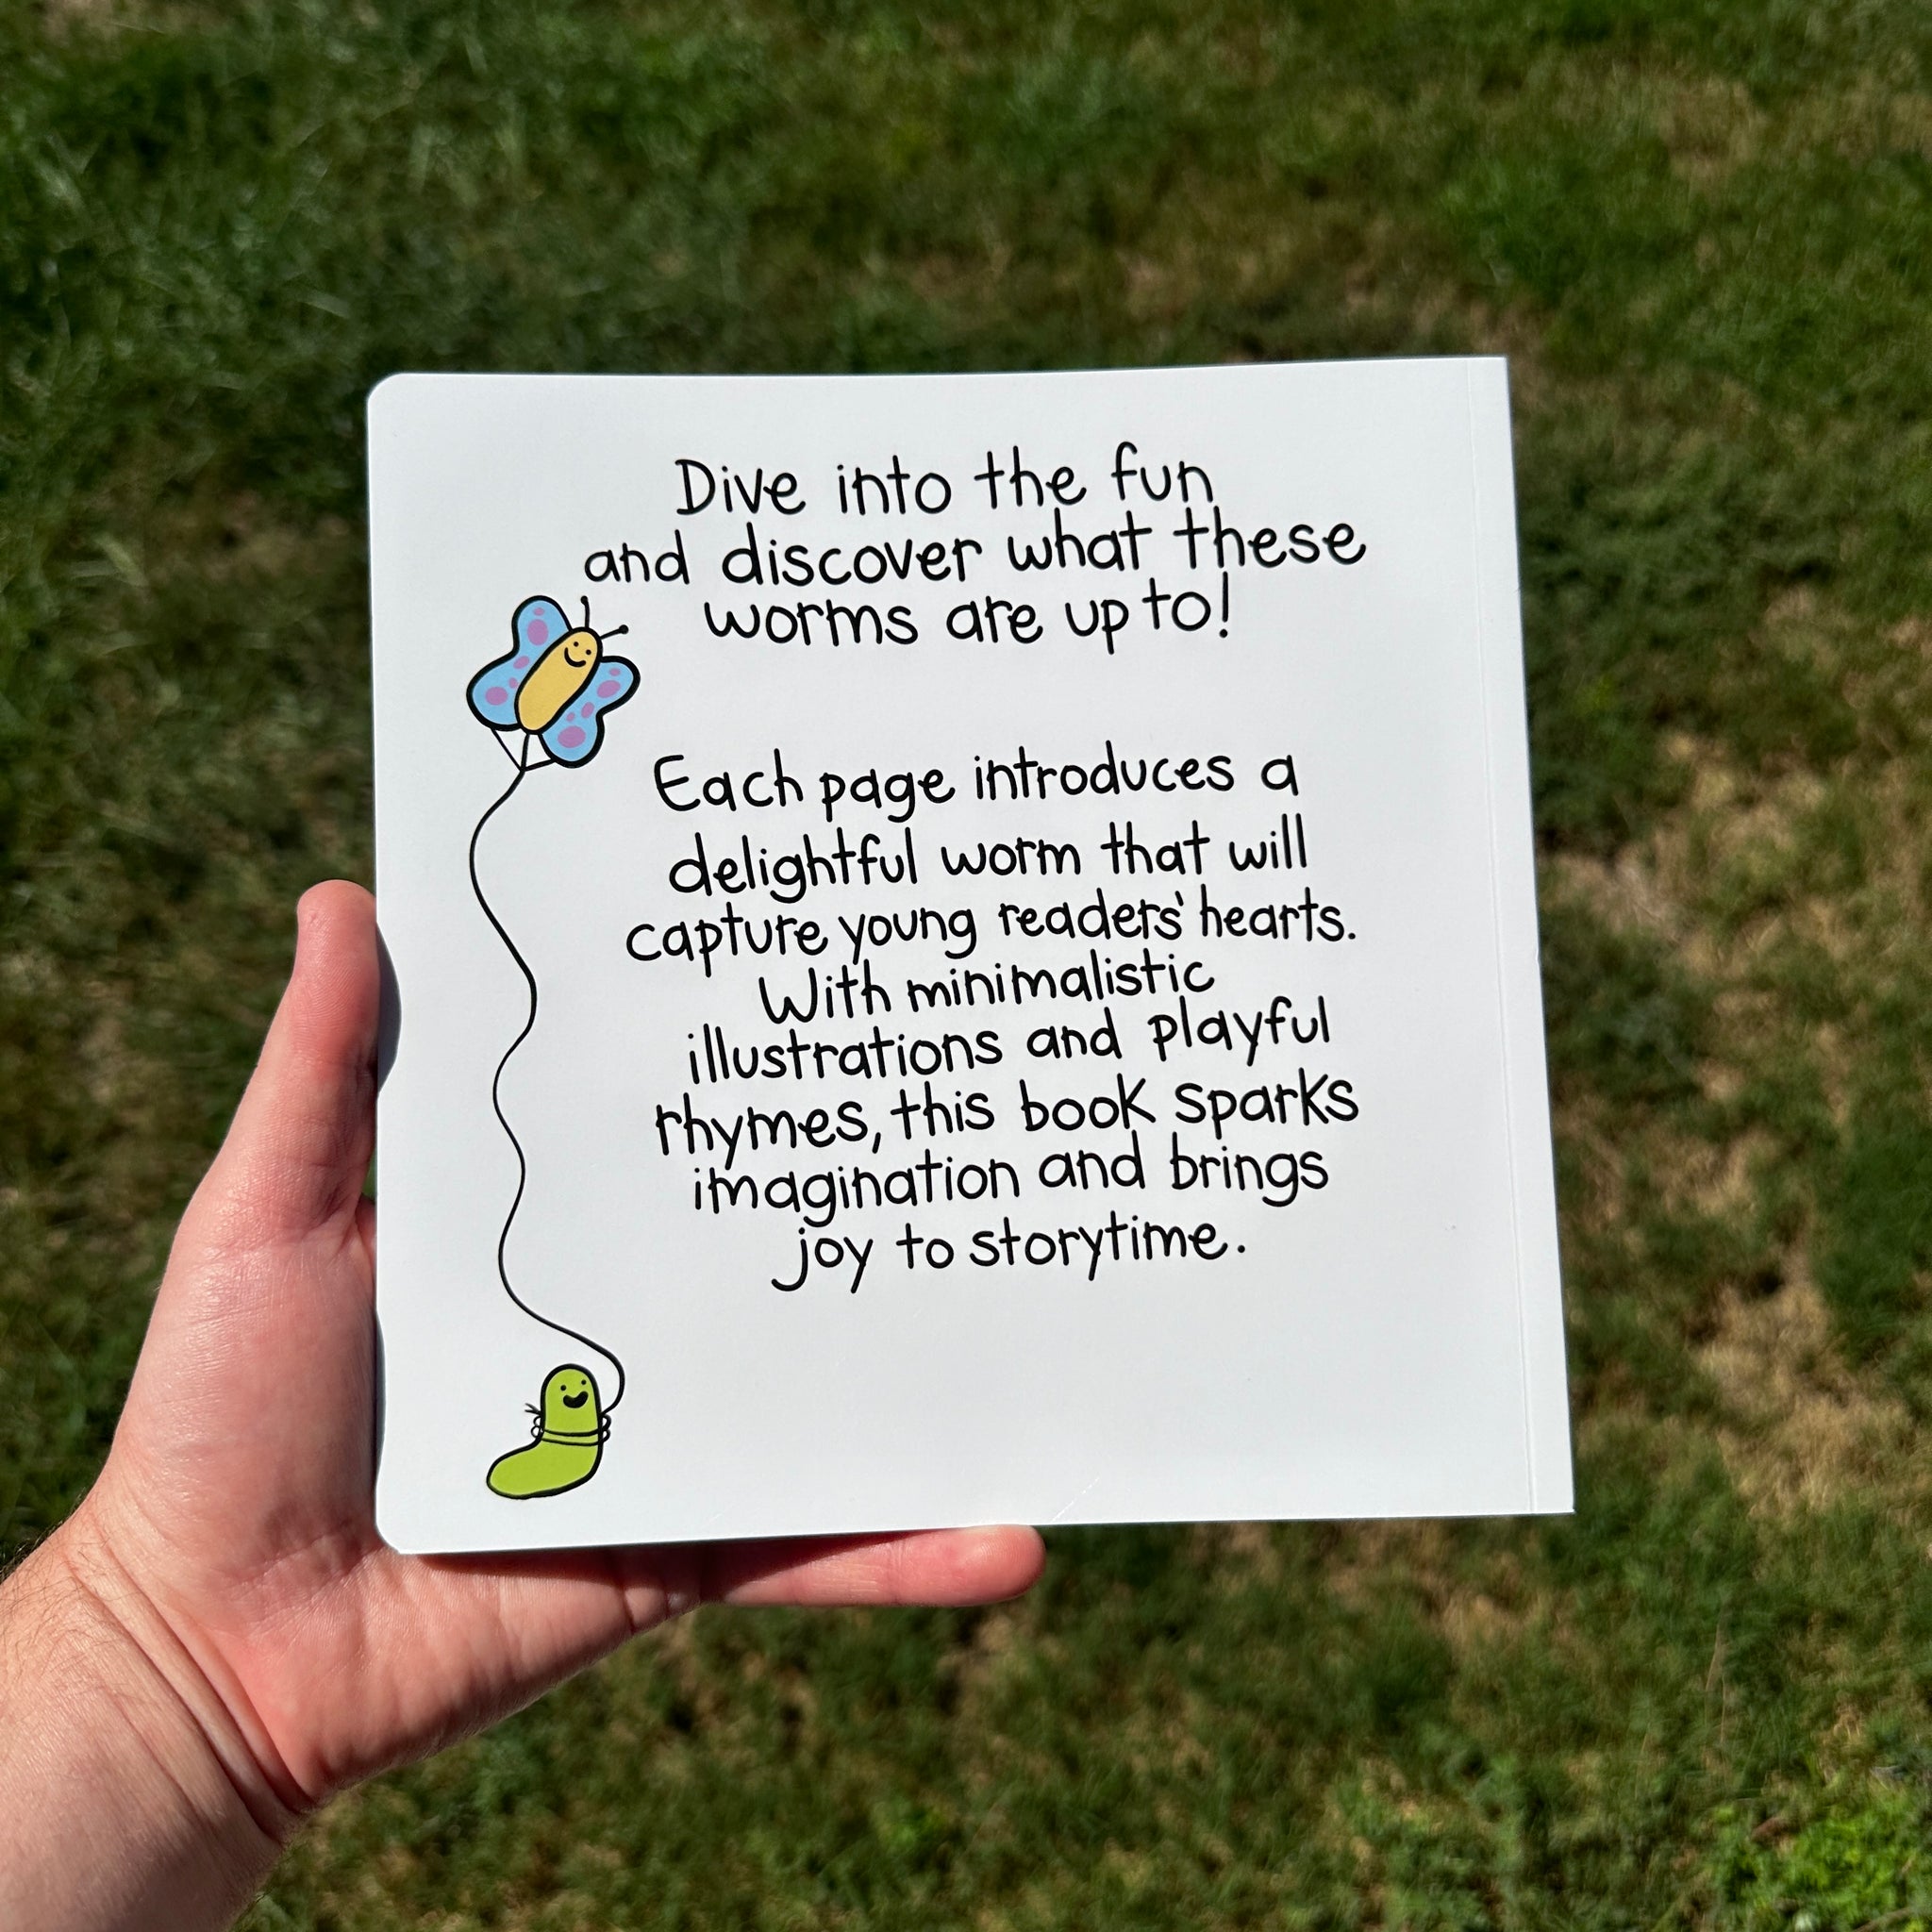 Dive into the fun
and discover what these
worms are up to!
Each page introduces a
delightful worm that will
capture young readers' hearts.
With minimalistic
illustrations and playful
rhymes, this book sparks
imagination and brings
joy to storytime.